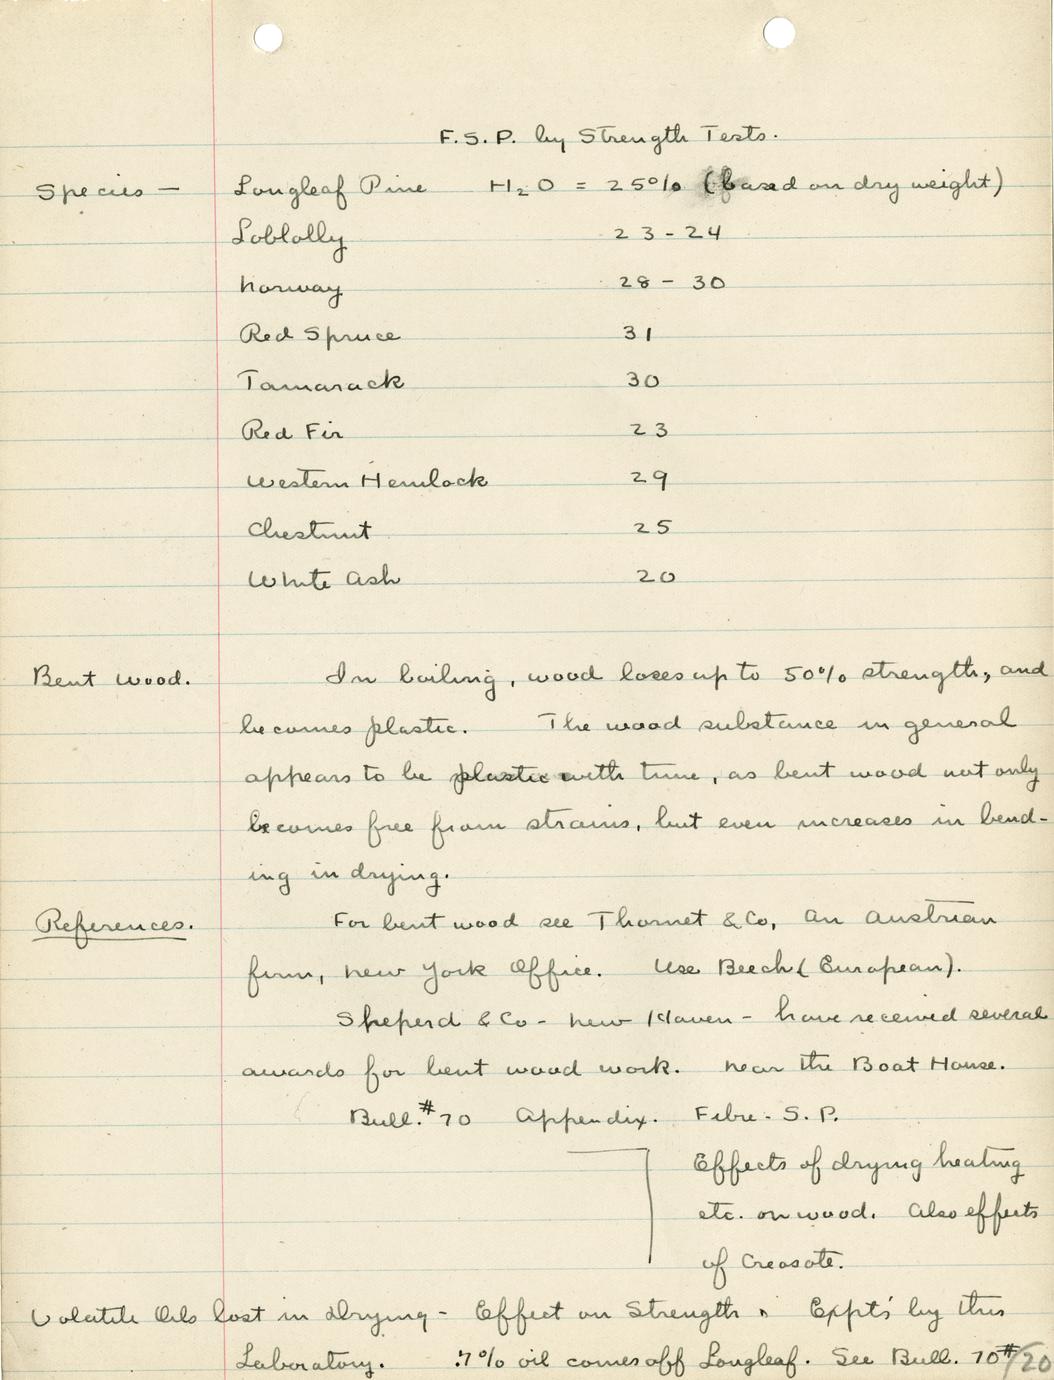 F.S.P. by Strength Tests.
Species — Longleaf Pine H2O = 25% (based on dry weight)
Loblolly 23-24
Norway 28-30
Red Spruce 31
Tamarack 30
Red Fir 23
Western Hemlock 29
Chestnut 25
White Ash 20
Bent wood. In boiling, wood loses up to 50% strength, and
becomes plastic. The wood substance in general
appears to be plastic with time, as bent wood not only
becomes free from strains, but even increases in bend-
ing in drying.
References. For bent wood see Thornet & Co, An Austrian
firm, New York Office. Use Beech (European).
Sheperd & Co - New Haven - have received several
awards for bent wood work. Near the Boat House.
Bull. #70 Appendix. Fibre. S.P.
Effects of drying heating
etc. on wood. Also effects
of Creosote.
Volatile Oils lost in Drying - Effect on Strength. Expts' by this
Laboratory. .7% oil comes off Longleaf. See Bull. 70#/20